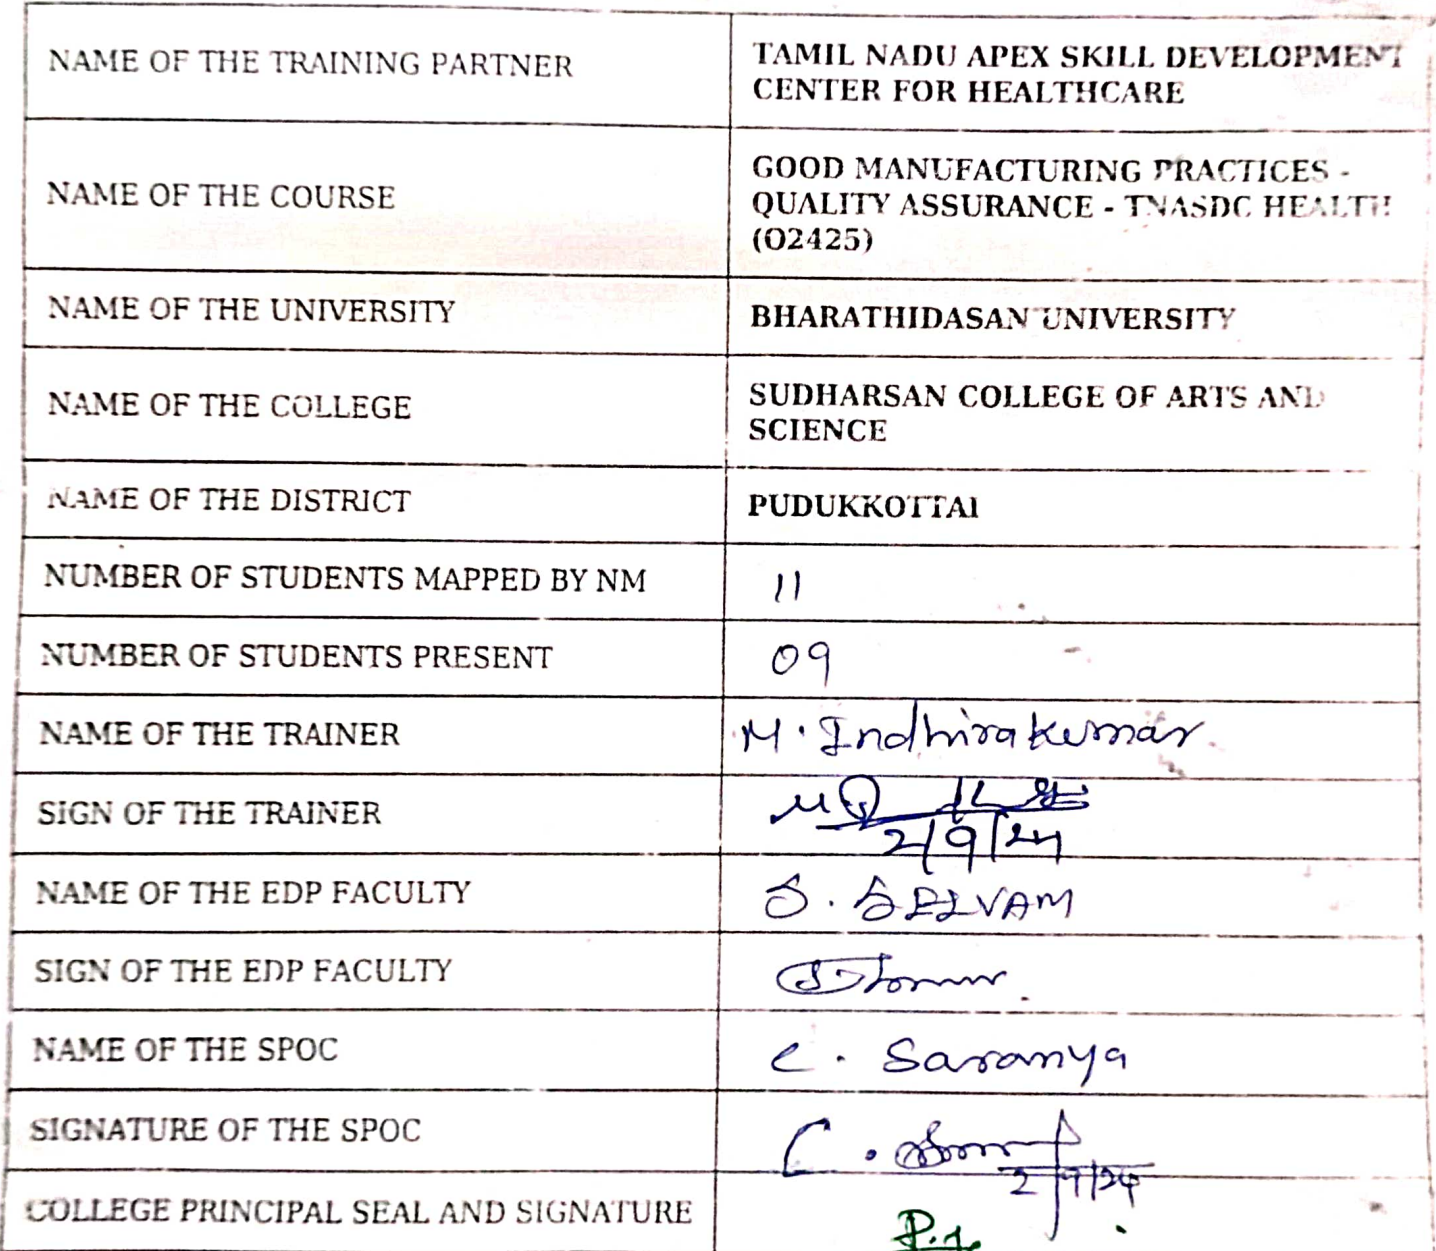 NAME OF THE TRAINING PARTNER
TAMIL NADU APEX SKILL DEVELOPMENT
CENTER FOR HEALTHCARE
NAME OF THE COURSE
GOOD MANUFACTURING PRACTICES -
QUALITY ASSURANCE - TNASDC HEALTH
(O2425)
NAME OF THE UNIVERSITY
BHARATHIDASAN UNIVERSITY
NAME OF THE COLLEGE
SUDHARSAN COLLEGE OF ARTS AND
SCIENCE
NAME OF THE DISTRICT
PUDUKKOTTAI
NUMBER OF STUDENTS MAPPED BY NM
11
NUMBER OF STUDENTS PRESENT
09
NAME OF THE TRAINER
M. Indhirakumar
SIGN OF THE TRAINER
2/9/24
NAME OF THE EDP FACULTY
S. SELVAM
SIGN OF THE EDP FACULTY
NAME OF THE SPOC
C. Saranya
SIGNATURE OF THE SPOC
C.
2/9/24
COLLEGE PRINCIPAL SEAL AND SIGNATURE